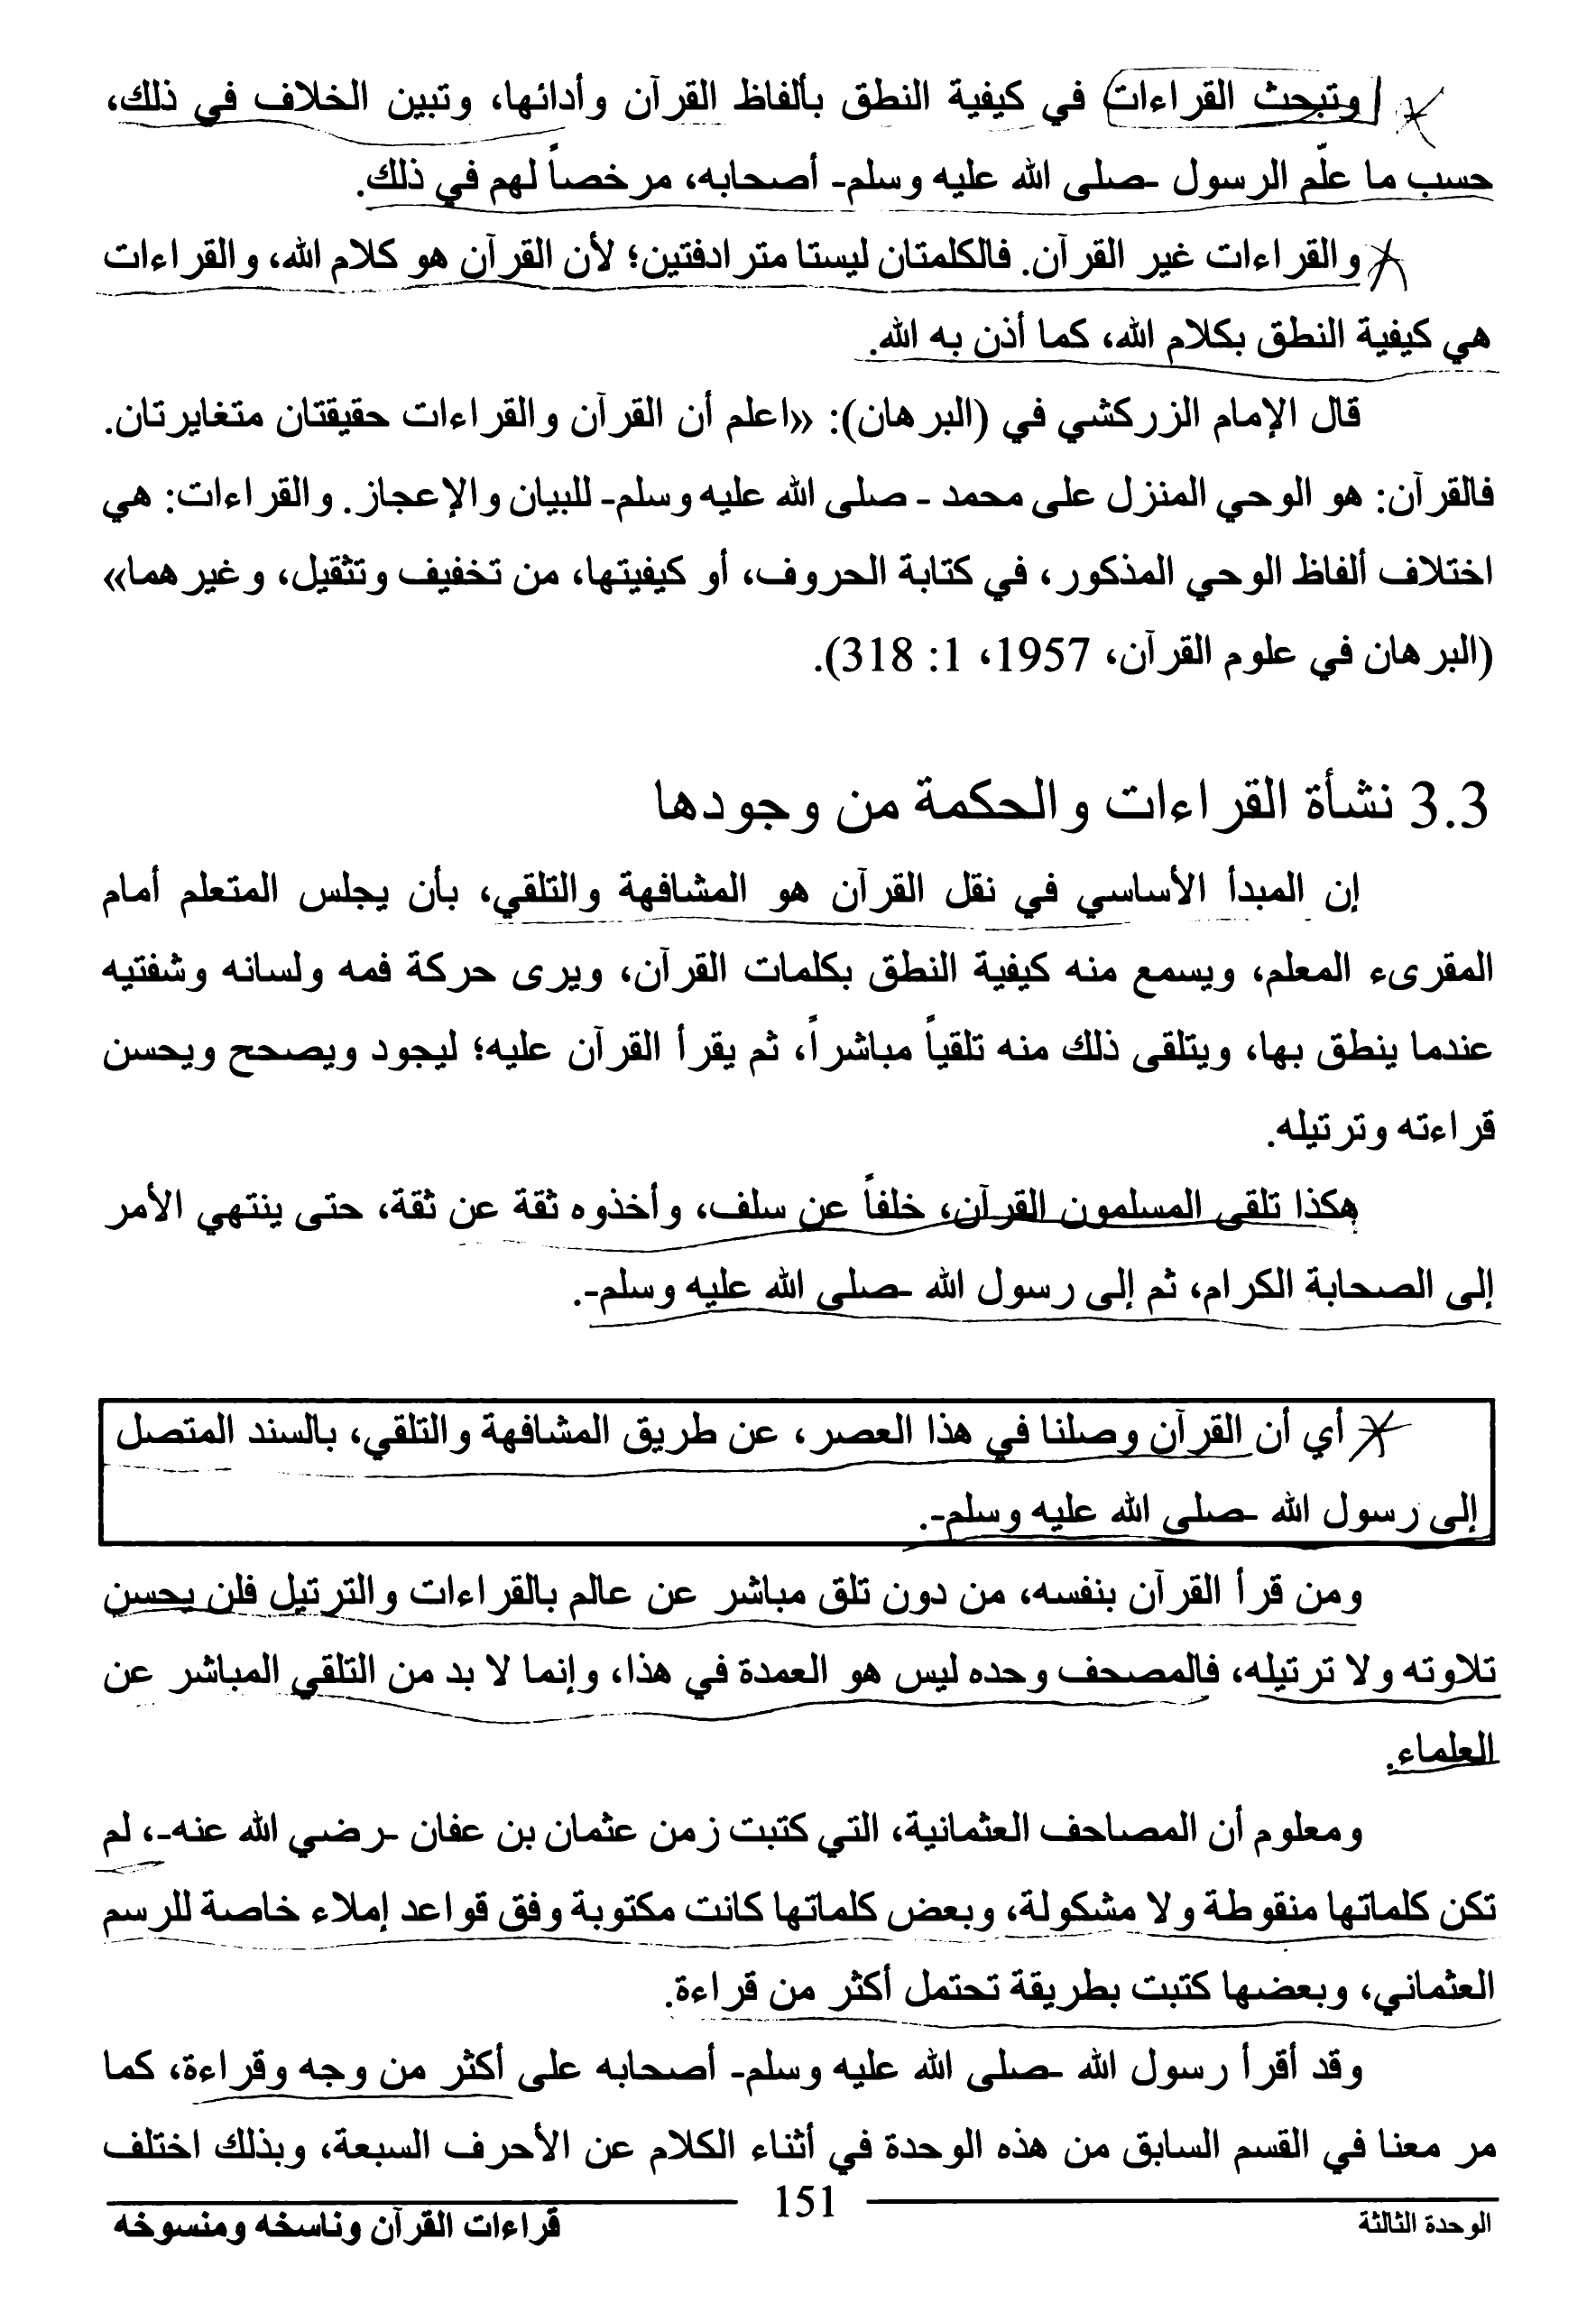 وتبحث القراءات في كيفية النطق بألفاظ القرآن وأدائها، وتبين الخلاف في ذلك،
حسب ما علّم الرسول -صلى الله عليه وسلم- أصحابه، مرخصاً لهم في ذلك.
والقراءات غير القرآن. فالكلمتان ليستا مترادفتين؛ لأن القرآن هو كلام الله، والقراءات
هي كيفية النطق بكلام الله، كما أذن به الله.
قال الإمام الزركشي في (البرهان): «اعلم أن القرآن والقراءات حقيقتان متغايرتان.
فالقرآن: هو الوحي المنزل على محمد - صلى الله عليه وسلم- للبيان والإعجاز. والقراءات: هي
اختلاف ألفاظ الوحي المذكور، في كتابة الحروف، أو كيفيتها، من تخفيف وتثقيل، وغيرهما»
(البرهان في علوم القرآن، 1957، 1: 318).
3.3 نشأة القراءات والحكمة من وجودها
إن المبدأ الأساسي في نقل القرآن هو المشافهة والتلقي، بأن يجلس المتعلم أمام
المقرىء المعلم، ويسمع منه كيفية النطق بكلمات القرآن، ويرى حركة فمه ولسانه وشفتيه
عندما ينطق بها، ويتلقى ذلك منه تلقياً مباشراً، ثم يقرأ القرآن عليه؛ ليجود ويصحح ويحسن
قراءته وترتيله.
هكذا تلقى المسلمون القرآن، خلفاً عن سلف، وأخذوه ثقة عن ثقة، حتى ينتهي الأمر
إلى الصحابة الكرام، ثم إلى رسول الله -صلى الله عليه وسلم-.
أي أن القرآن وصلنا في هذا العصر، عن طريق المشافهة والتلقي، بالسند المتصل
إلى رسول الله -صلى الله عليه وسلم-.
ومن قرأ القرآن بنفسه، من دون تلق مباشر عن عالم بالقراءات والترتيل فلن يحسن
تلاوته ولا ترتيله، فالمصحف وحده ليس هو العمدة في هذا، وإنما لا بد من التلقي المباشر عن
العلماء.
ومعلوم أن المصاحف العثمانية، التي كتبت زمن عثمان بن عفان -رضي الله عنه-، لم
تكن كلماتها منقوطة ولا مشكولة، وبعض كلماتها كانت مكتوبة وفق قواعد إملاء خاصة للرسم
العثماني، وبعضها كتبت بطريقة تحتمل أكثر من قراءة.
وقد أقرأ رسول الله -صلى الله عليه وسلم- أصحابه على أكثر من وجه وقراءة، كما
مر معنا في القسم السابق من هذه الوحدة في أثناء الكلام عن الأحرف السبعة، وبذلك اختلف
الوحدة الثالثة 151 قراءات القرآن وناسخه ومنسوخه